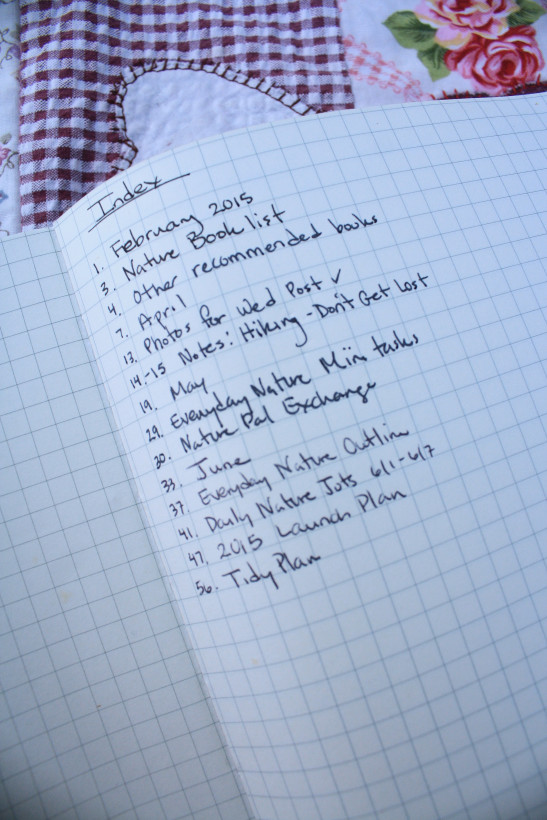 Index
1. February 2015
3. Nature Book list
4. Other recommended books
7. April
13. Photos for Wed Post ✓
14.-15 Notes: Hiking - Don't Get Lost
19. May
29. Everyday Nature Mini tasks
30. Nature Pal Exchange
33. June
37. Everyday Nature Outline
41. Daily Nature Jots 6/1-6/7
47. 2015 Launch Plan
56. Tidy Plan